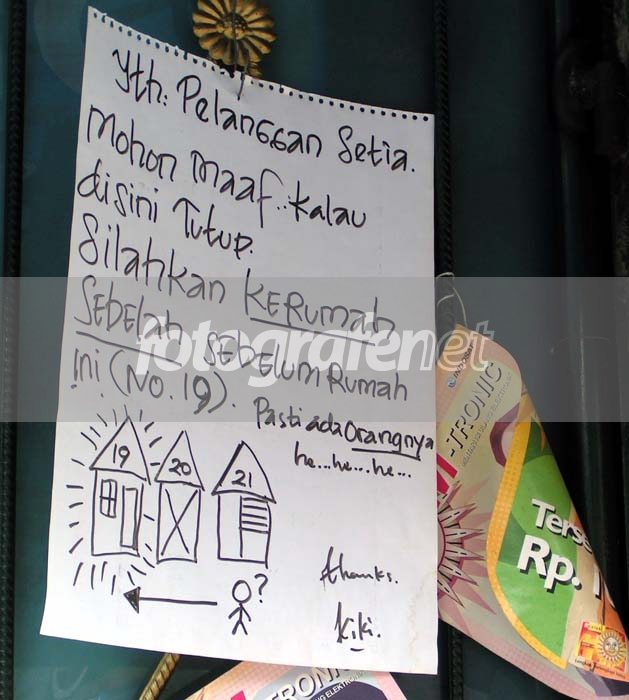 Yth: Pelanggan Setia.
Mohon Maaf.. kalau
disini Tutup.
Silahkan KERUMAH
SEBELAH SEBELUM RUMAH
ini (No. 19). Pasti ada orangnya
he...he...he...
19 20 21
?
thanks.
kiki.
fotografenet
INDOSAT
-TRONIC
Terse
Rp. 1
TRONIC